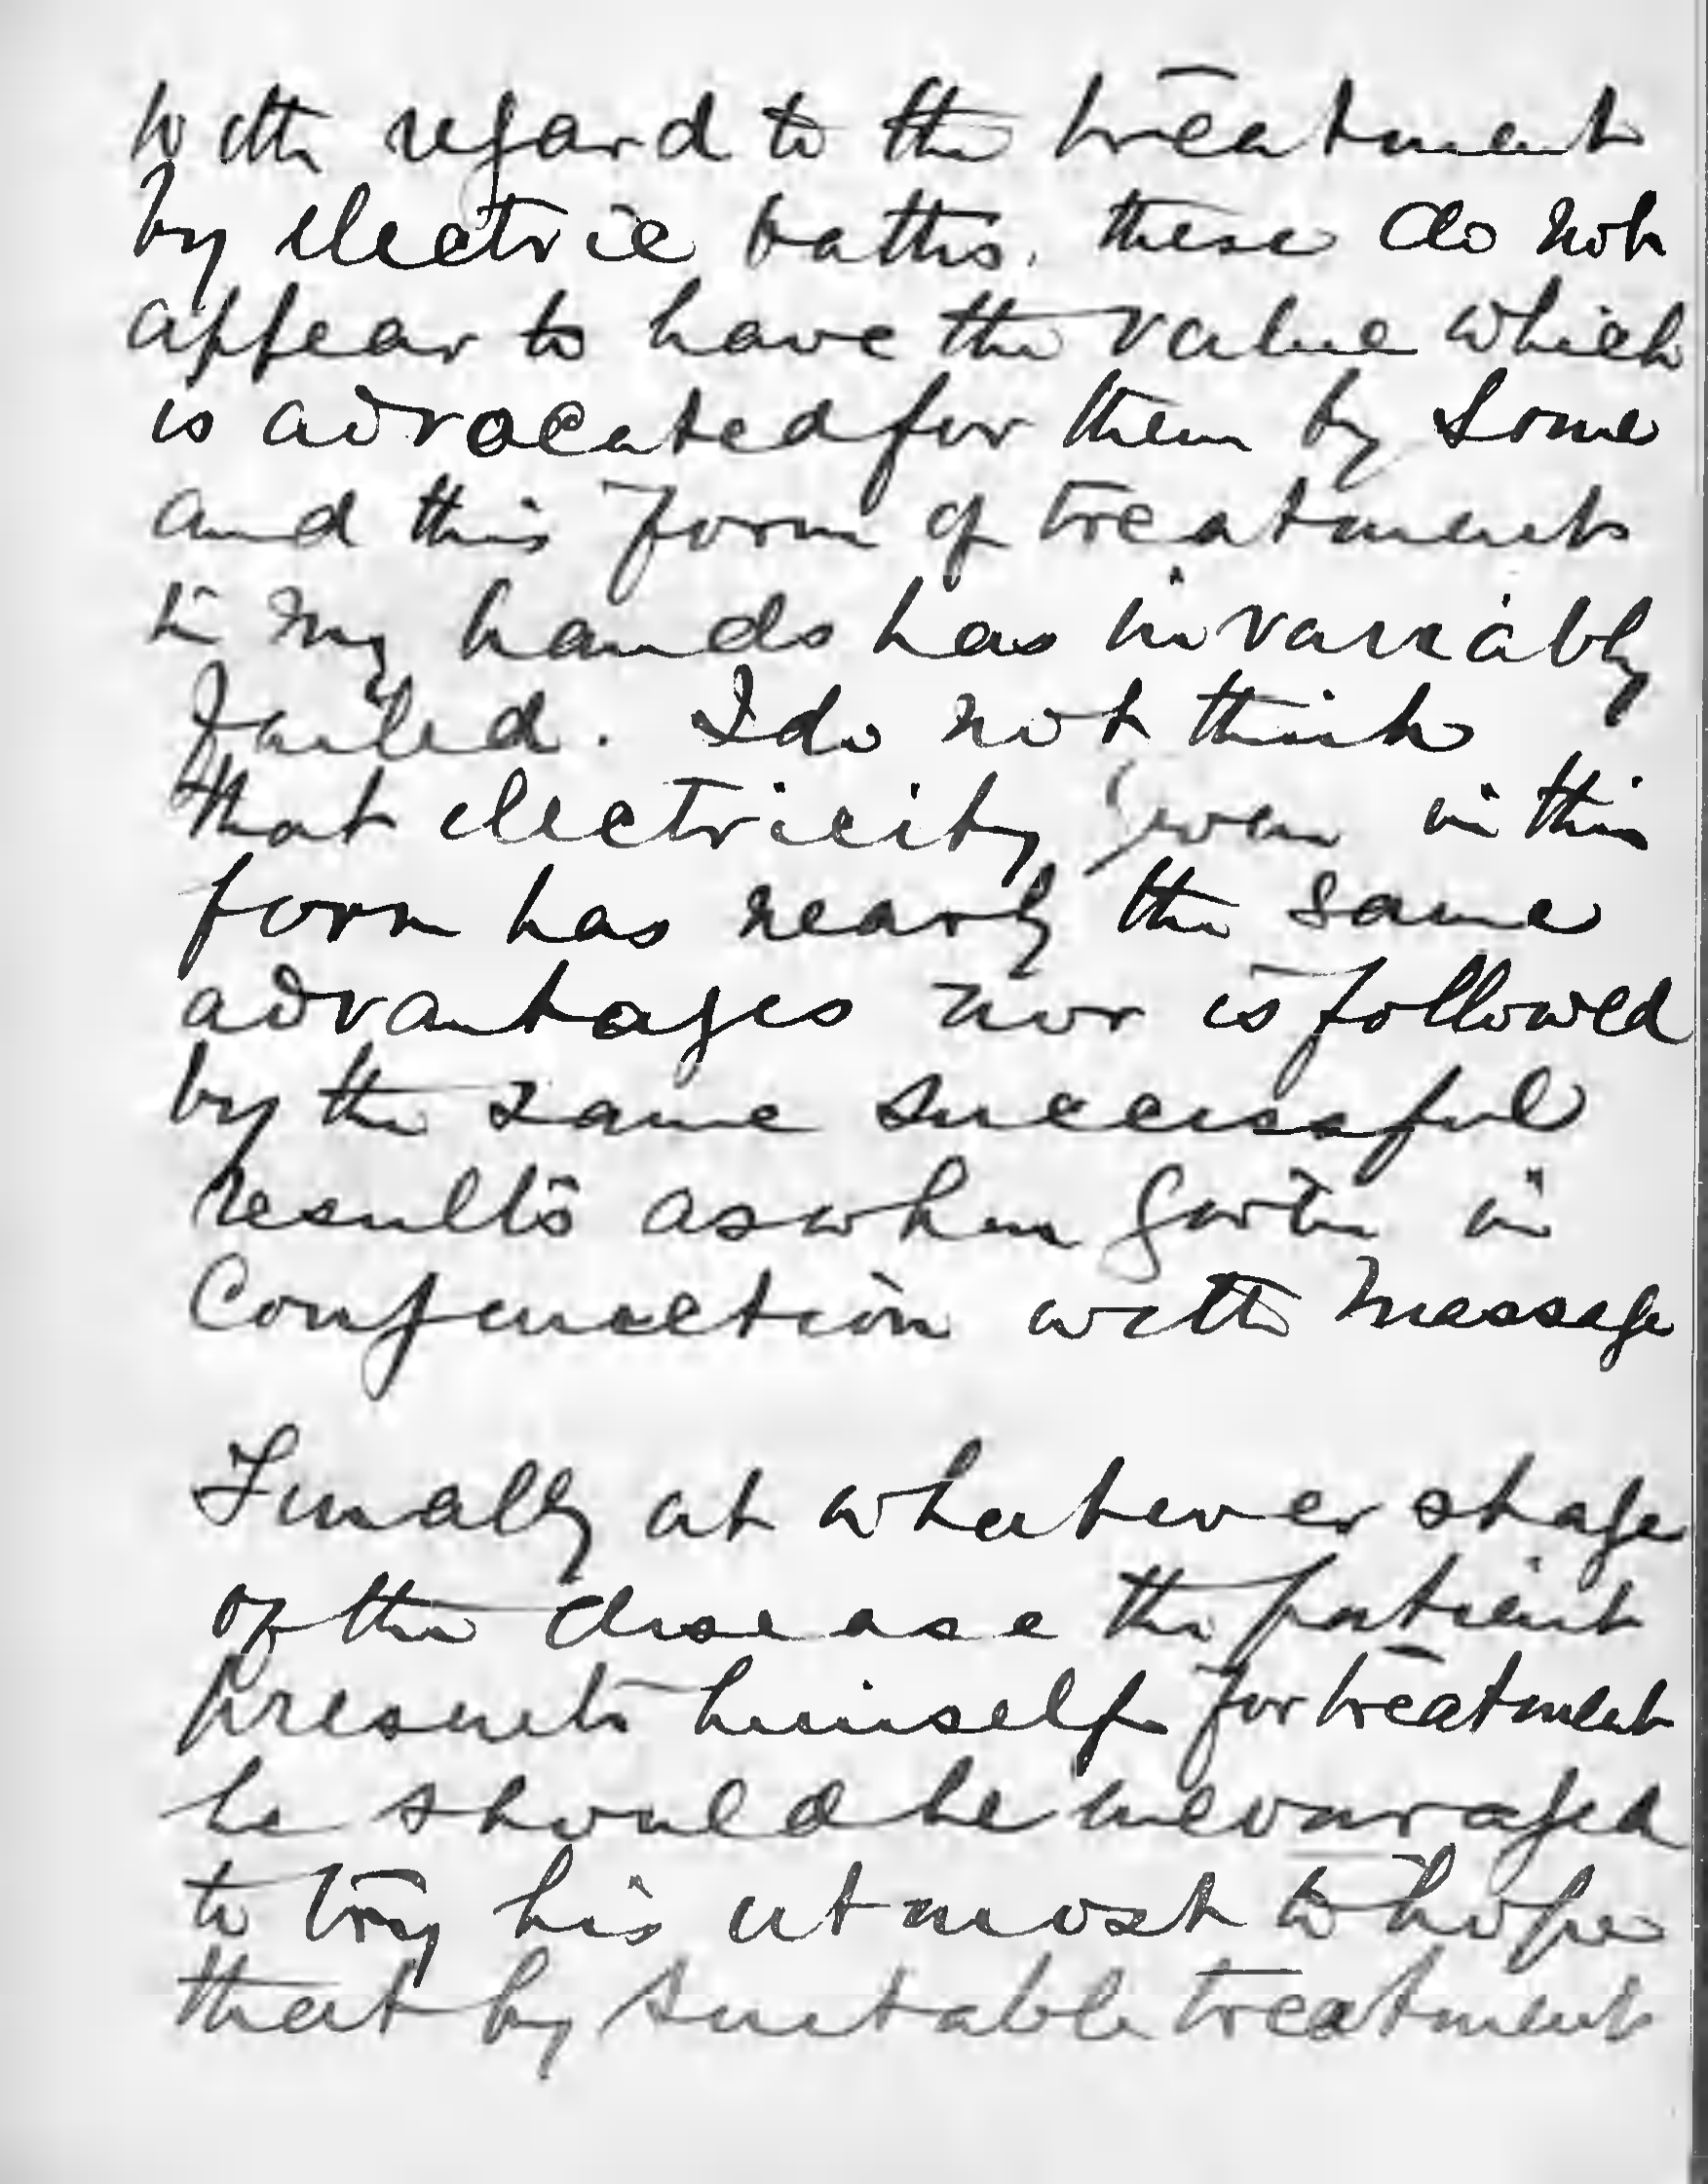 With regard to the treatment
by electric baths. these do not
appear to have the value which
is advocated for them by some
and this form of treatment
in my hands has invariably
failed. I do not think
that electricity given in this
form has nearly the same
advantages nor is followed
by the same successful
results as when given in
Conjunction with Massage
Finally at whatever stage
of the disease the patient
presents himself for treatment
he should be encouraged
to try his utmost to hope
that by suitable treatment